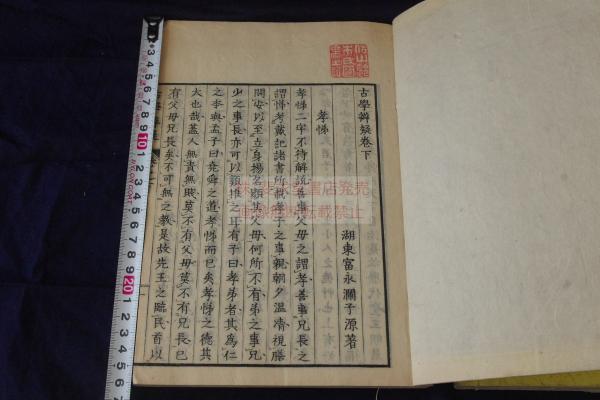 古學辨疑卷下
湖東富永瀾子源著
孝悌
孝悌二字不待解説善事父母之謂孝善事兄長之
謂悌考戴記諸書所載孝子之事親朝夕溫凊視膳
問安以至立身揚名顯其父母何所不有弟之事兄
少之事長亦可以類推之耳有子曰孝弟者其爲仁
之本與孟子曰堯舜之道孝悌而已矣孝悌之德其
大也哉蓋人無貴無賤莫不有父母莫不有兄長已
有父母兄長矣不可無之教是故先王之臨民首以
画像無断転載禁止
10
20